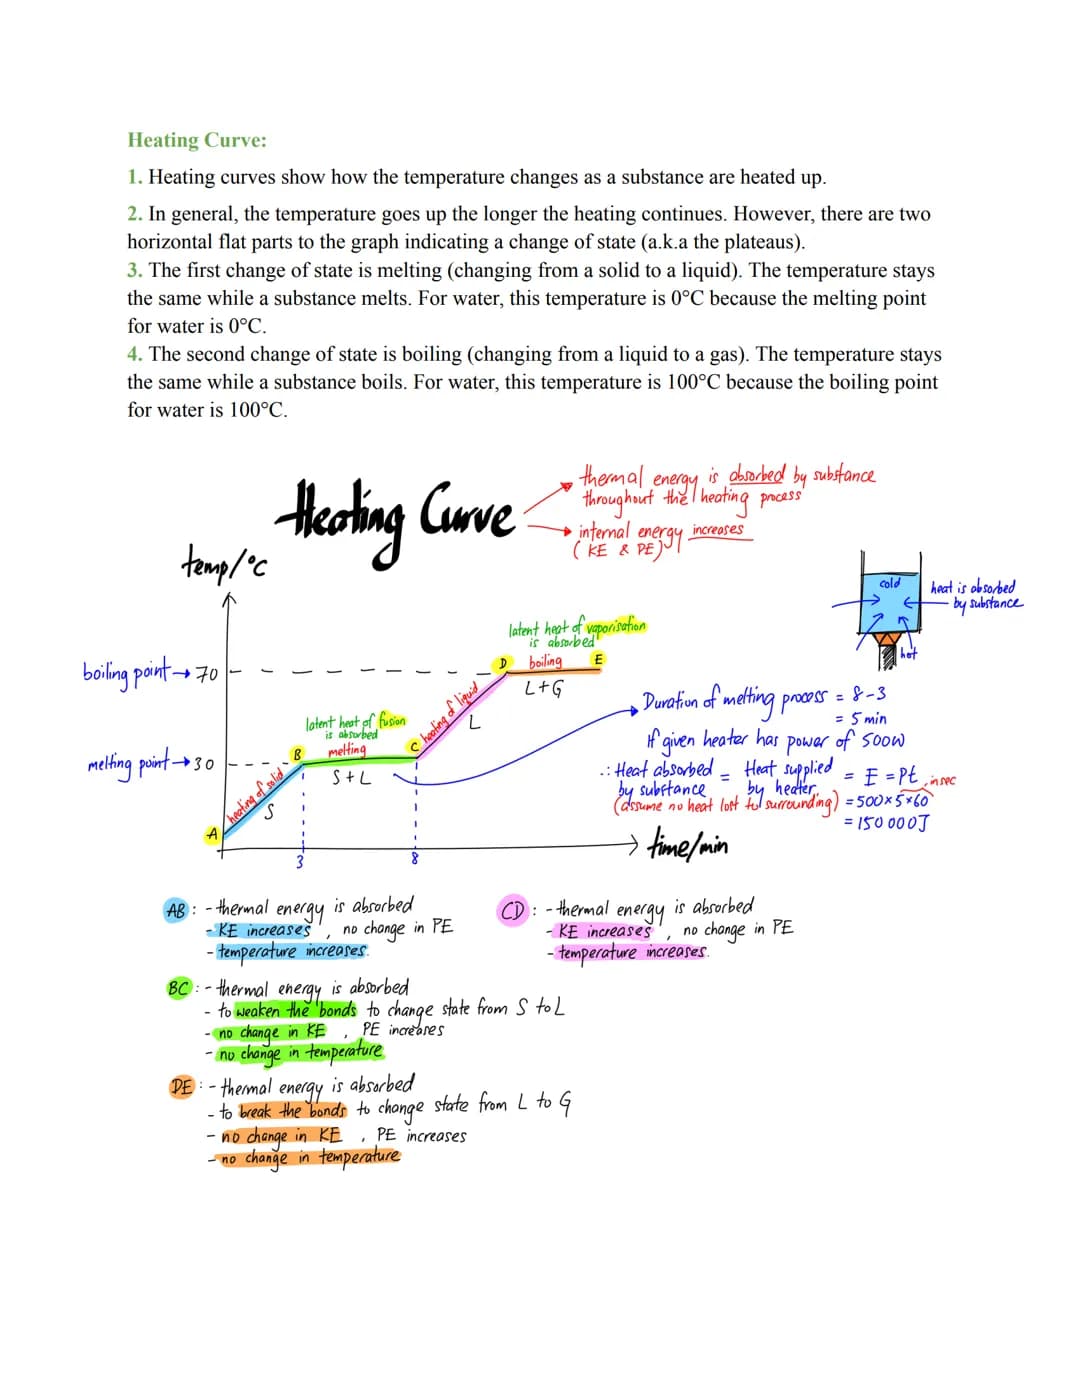 Heating Curve:
1. Heating curves show how the temperature changes as a substance are heated up.
2. In general, the temperature goes up the longer the heating continues. However, there are two
horizontal flat parts to the graph indicating a change of state (a.k.a the plateaus).
3. The first change of state is melting (changing from a solid to a liquid). The temperature stays
the same while a substance melts. For water, this temperature is 0°C because the melting point
for water is 0°C.
4. The second change of state is boiling (changing from a liquid to a gas). The temperature stays
the same while a substance boils. For water, this temperature is 100°C because the boiling point
for water is 100°C.
Heating Curve
→ thermal energy is absorbed by substance
throughout the heating process
→ internal energy increases
(KE & PE)
temp/°C
cold
heat is absorbed
by substance
hot
latent heat of vaporisation
is absorbed
boiling point → 70
D boiling E
L+G
heating of liquid
L
latent heat of fusion
is absorbed
melting
B
C
S+L
melting point → 30
heating of solid
S
A
3
8
time/min
Duration of melting process = 8-3
= 5 min
If given heater has power of 500W
∴ Heat absorbed = Heat supplied = E = Pt in sec
by substance by heater
(assume no heat lost to surrounding) = 500×5×60
= 150 000J
AB : - thermal energy is absorbed
- KE increases , no change in PE
- temperature increases.
CD : - thermal energy is absorbed
- KE increases , no change in PE
- temperature increases.
BC : - thermal energy is absorbed
- to weaken the bonds to change state from S to L
- no change in KE , PE increases
- no change in temperature
DE : - thermal energy is absorbed
- to break the bonds to change state from L to G
- no change in KE , PE increases
- no change in temperature